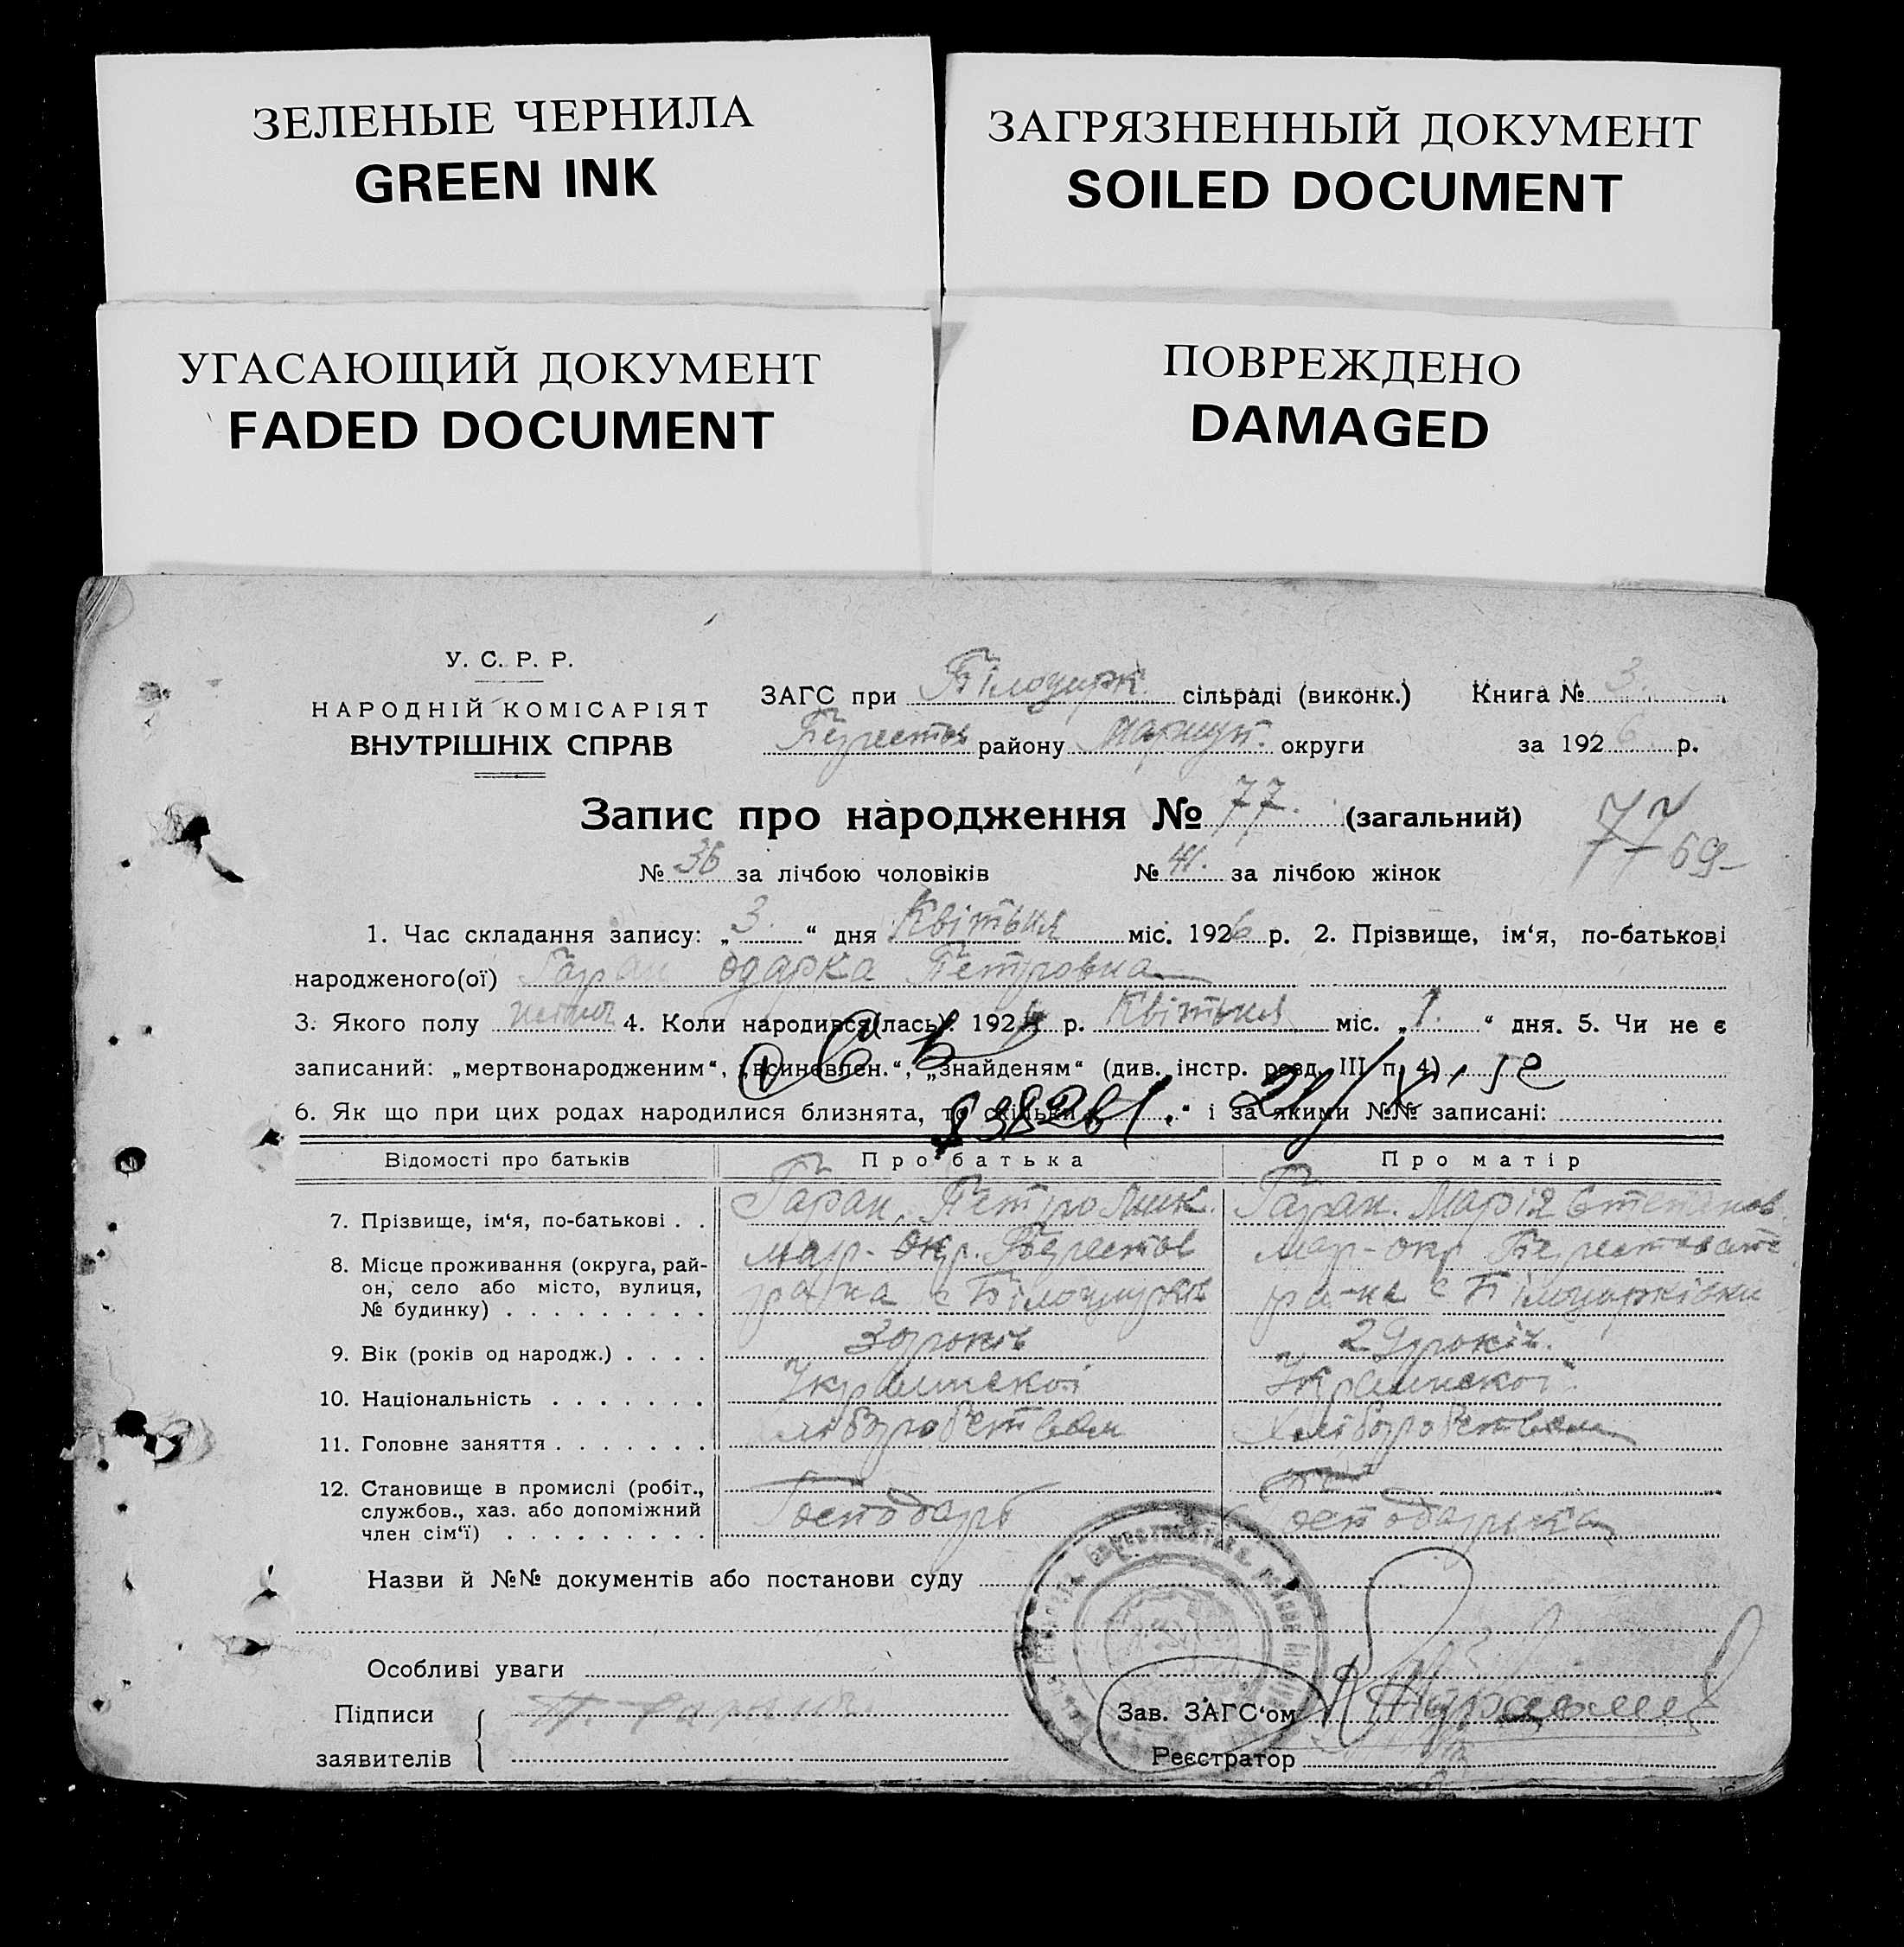 ЗЕЛЕНЫЕ ЧЕРНИЛА
GREEN INK
ЗАГРЯЗНЕННЫЙ ДОКУМЕНТ
SOILED DOCUMENT
УГАСАЮЩИЙ ДОКУМЕНТ
FADED DOCUMENT
ПОВРЕЖДЕНО
DAMAGED
У. С. Р. Р.
НАРОДНІЙ КОМІСАРІЯТ
ВНУТРІШНІХ СПРАВ
ЗАГС при Білоцерк. сільраді (виконк.) Книга № 3.
району Маріуп. округи за 1926 р.
Запис про народження № 77. (загальний)
77 69
№ 36 за лічбою чоловіків № 41. за лічбою жінок
1. Час складання запису: „3.“ дня Квітня міс. 1926 р. 2. Прізвище, ім‘я, по-батькові
народженого(ої) Гаран Одарка Петровна
3. Якого полу 4. Коли народився(лась): 1926 р. Квітня міс. „1.“ дня. 5. Чи не є
записаний: „мертвонародженим“, „всиновлен.“, „знайденям“ (див. інстр. розд. III п. 4)
6. Як що при цих родах народилися близнята, то скільки “ і за якими №№ записані:
Відомості про батьків Про батька Про матір
7. Прізвище, ім‘я, по-батькові . . Гаран. Петро Мик. Гаран. Марія Степанов.
8. Місце проживання (округа, рай- Мар. Окр. Берестов Мар-окр
он, село або місто, вулиця, ра-на с ра-на с Білоцерківки
№ будинку)
9. Вік (років од народж.) 30 років 29 років.
10. Національність Українскої Українскої
11. Головне заняття Хліборобством Хліборобством
12. Становище в промислі (робіт.,
службов., хаз. або допоміжний Господарь Господарька
член сім‘ї)
Назви й №№ документів або постанови суду
Особливі уваги
Підписи П. Гаран
Зав. ЗАГС‘ом
заявителів
Реєстратор